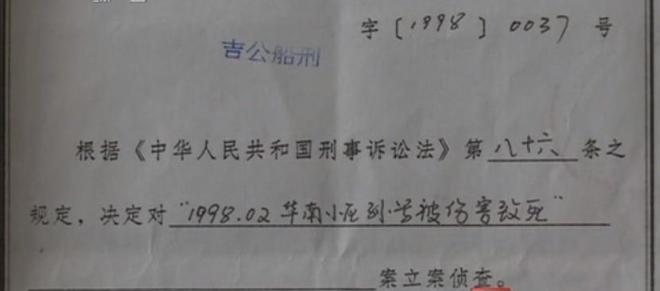 字〔1998〕0037 号
吉公船刑
根据《中华人民共和国刑事诉讼法》第八十六条之
规定，决定对"1998.02 华南小区刘 被伤害致死"
案立案侦查。